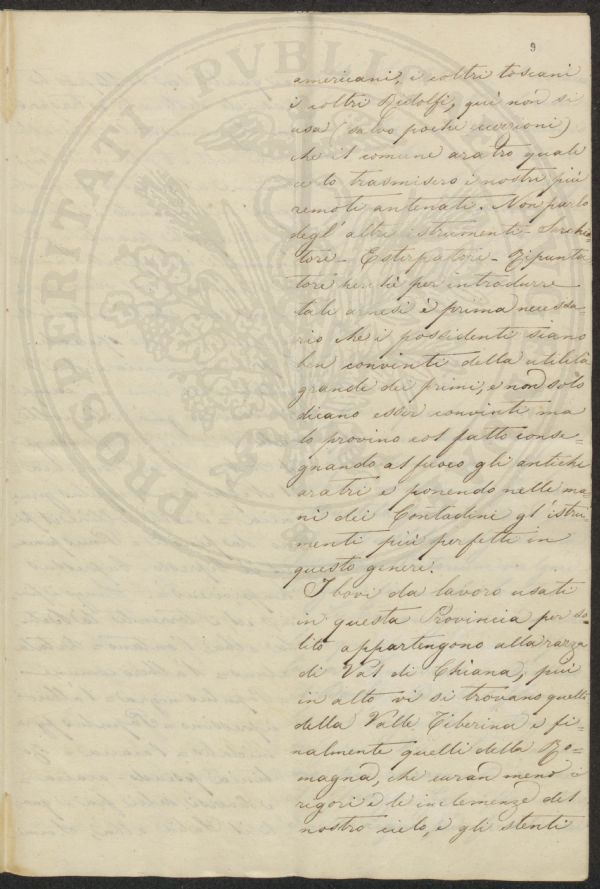 9
americani, i coltri toscani
i coltri Ridolfi, quì non si
usa (salvo poche eccezioni)
che il comune aratro quale
ce lo trasmisero i nostri più
remoti antenati. Non parlo
degl' altri istrumenti - Sarchia=
tore - Estirpatore - Ripunta
tore perchè per introdurre
tali arnesi è prima necessa=
rio che i possidenti siano
ben convinti della utilità
grande dei primi, e non solo
dicano esser convinti ma
lo provino col fatto conse=
gnando al fuoco gli antichi
aratri e ponendo nelle ma=
ni dei Contadini gl' istru=
menti più perfetti in
questo genere.
I bovi da lavoro usati
in questa Provincia per so=
lito appartengono alla razza
di Val di Chiana, più
in alto vi si trovano quelli
della Valle Tiberina e fi=
nalmente quelli della Ro=
magna, che curan meno i
rigori e le inclemenze del
nostro cielo, e gli stenti
PROSPERITATI PVBLICAE